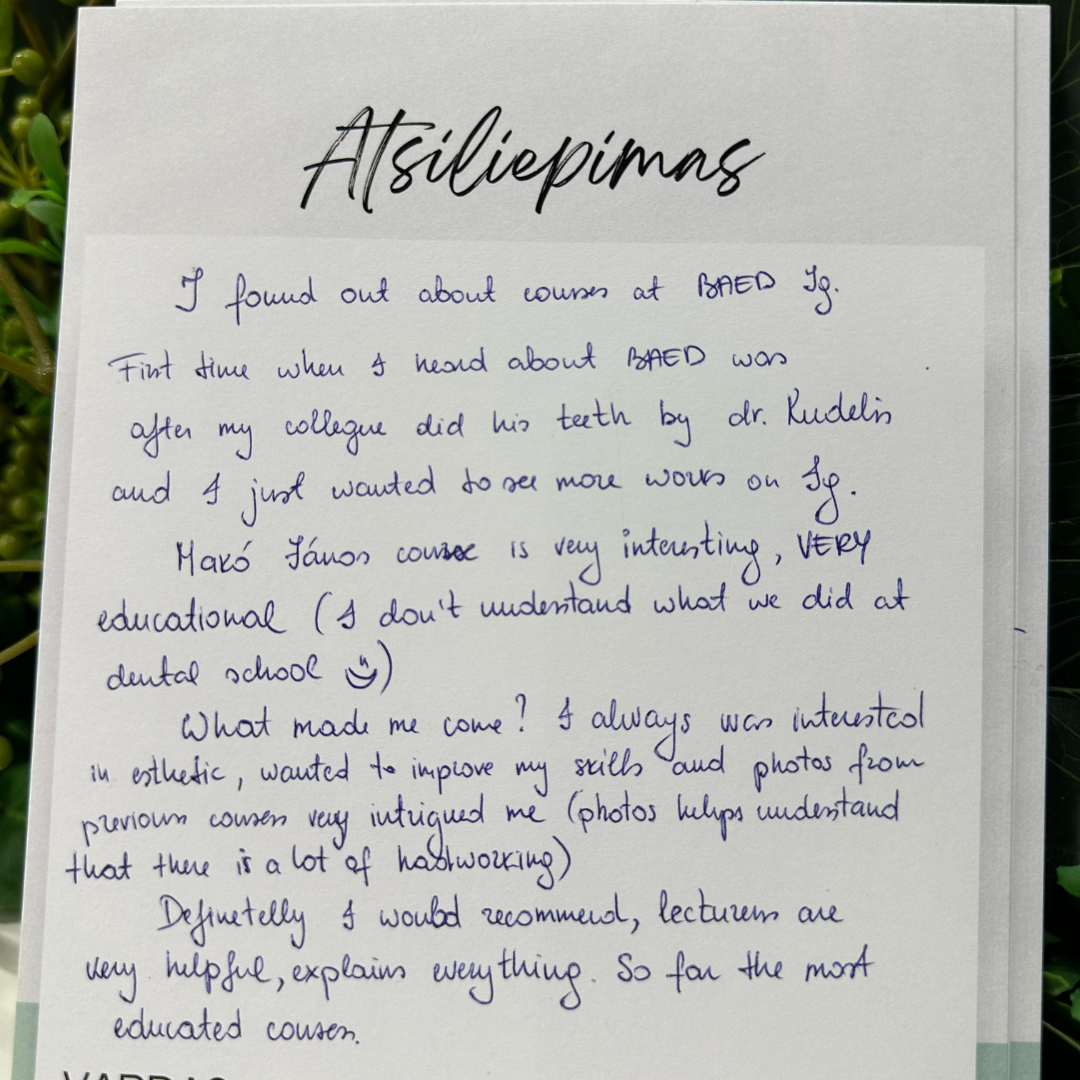 Atsiliepimas
I found out about courses at BAED Ig.
First time when I heard about BAED was
after my collegue did his teeth by dr. Kudelis
and I just wanted to see more works on Ig.
Makó János course is very interesting, VERY
educational (I don't understand what we did at
dental school
What made me come? I always was interested
in esthetic, wanted to improve my skills and photos from
previous courses very intrigued me (photos helps understand
that there is a lot of hadworking)
Definetelly I would recommend, lecturers are
very helpful, explains everything. So far the most
educated courses.